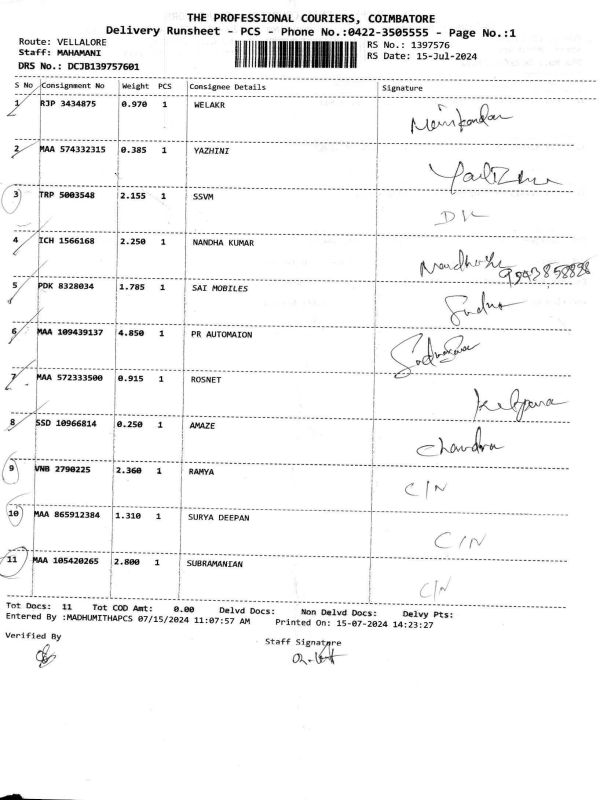 THE PROFESSIONAL COURIERS, COIMBATORE
Delivery Runsheet - PCS - Phone No.:0422-3505555 - Page No.:1
Route: VELLALORE
Staff: MAHAMANI
DRS No.: DCJB139757601
RS No.: 1397576
RS Date: 15-Jul-2024
S No Consignment No Weight PCS Consignee Details Signature
1 RJP 3434875 0.970 1 WELAKR
2 MAA 574332315 0.385 1 YAZHINI
3 TRP 5003548 2.155 1 SSVM D/L
4 ICH 1566168 2.250 1 NANDHA KUMAR
5 PDK 8328034 1.785 1 SAI MOBILES
6 MAA 109439137 4.850 1 PR AUTOMAION
7 MAA 572333500 0.915 1 ROSNET
8 SSD 10966814 0.250 1 AMAZE Chandra
9 VNB 2790225 2.360 1 RAMYA C/N
10 MAA 865912384 1.310 1 SURYA DEEPAN C/N
11 MAA 105420265 2.800 1 SUBRAMANIAN C/N
Tot Docs: 11 Tot COD Amt: 0.00 Delvd Docs: Non Delvd Docs: Delvy Pts:
Entered By :MADHUMITHAPCS 07/15/2024 11:07:57 AM Printed On: 15-07-2024 14:23:27
Verified By
Staff Signature